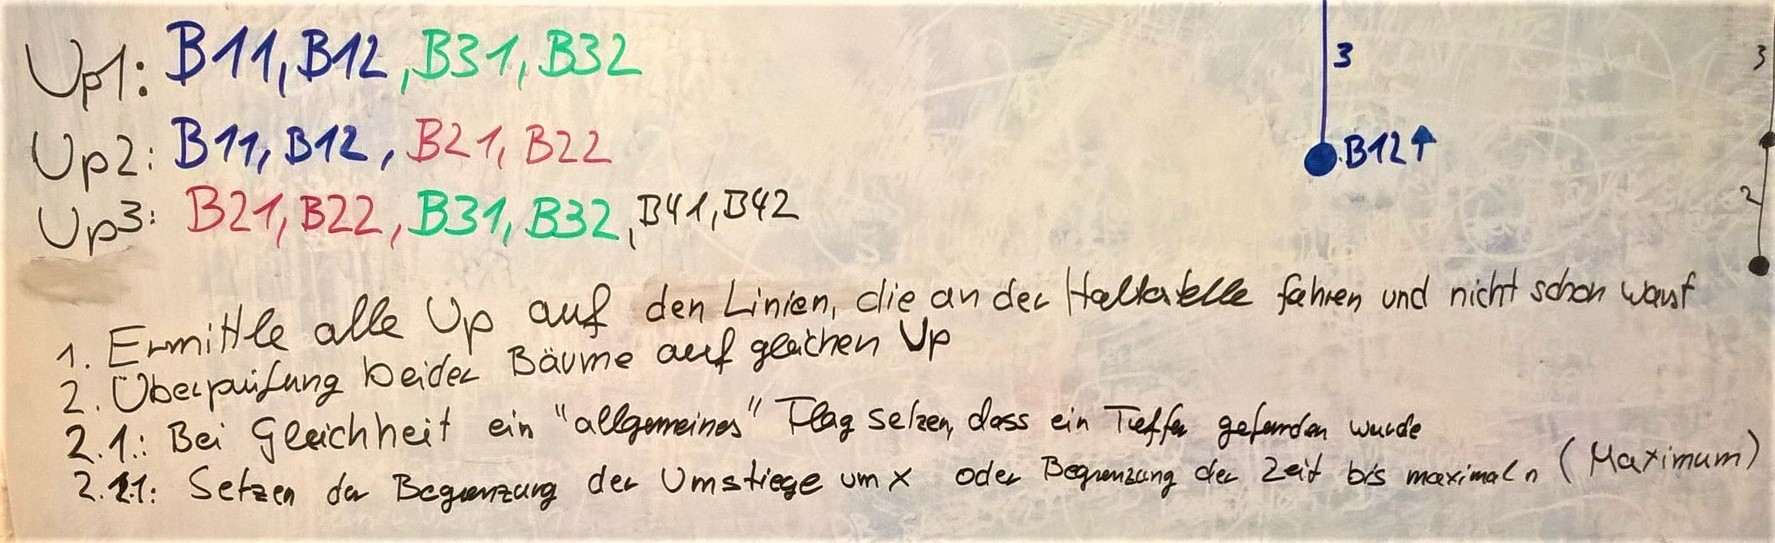 Up1: B11, B12, B31, B32
3
3
Up2: B11, B12, B21, B22
B12↑
Up3: B21, B22, B31, B32, B41, B42
2
1. Ermittle alle Up auf den Linien, die an der Haltestelle fahren und nicht schon
2. Überprüfung beider Bäume auf gleichen Up
2.1.: Bei Gleichheit ein "allgemeines" Flag setzen, dass ein Treffer gefunden wurde
2.1.1: Setzen der Begrenzung der Umstiege um x oder Begrenzung der Zeit bis maximal n (Maximum)